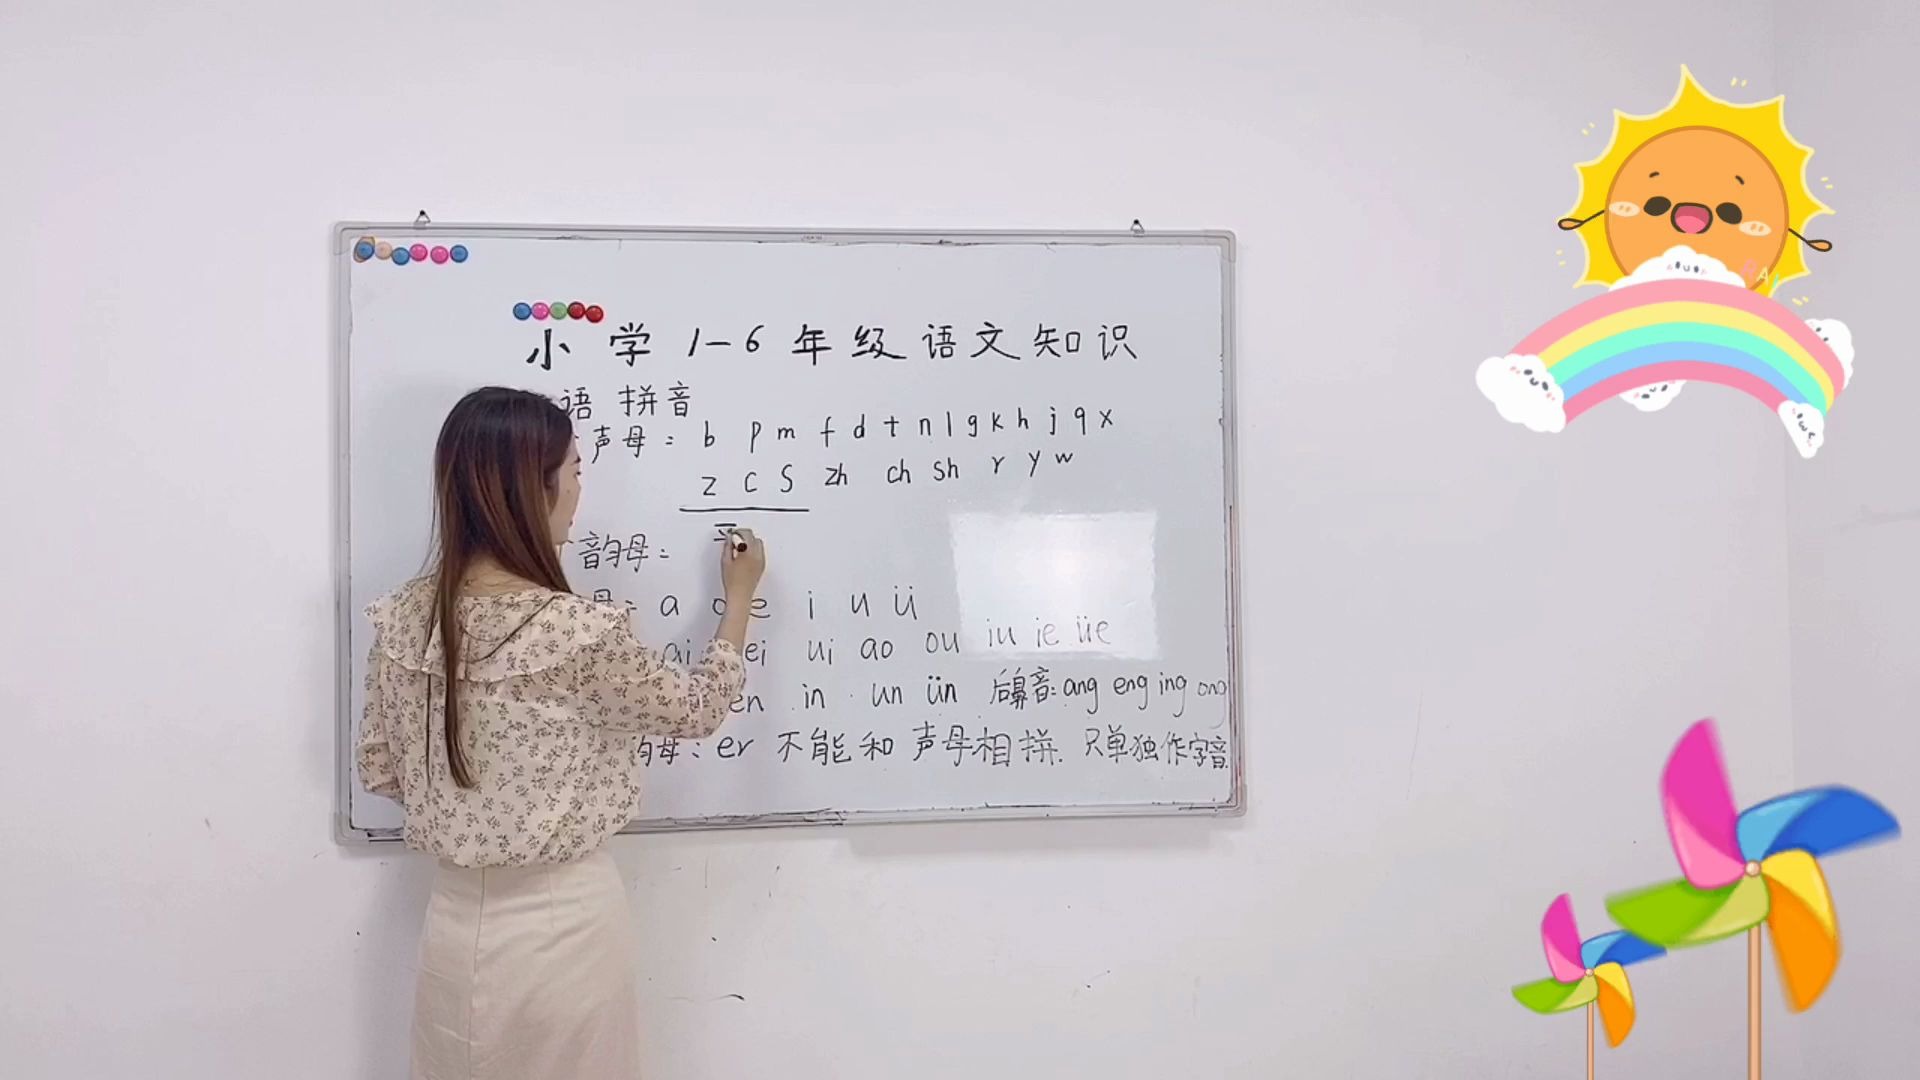 小学1-6年级语文知识
语拼音
声母: b p m f d t n l g k h j q x
z c s zh ch sh r y w
韵母:
母: a o e i u ü
ai ei ui ao ou iu ie üe
en in un ün 后鼻音: ang eng ing ong
韵母: er 不能和声母相拼. 只单独作字音